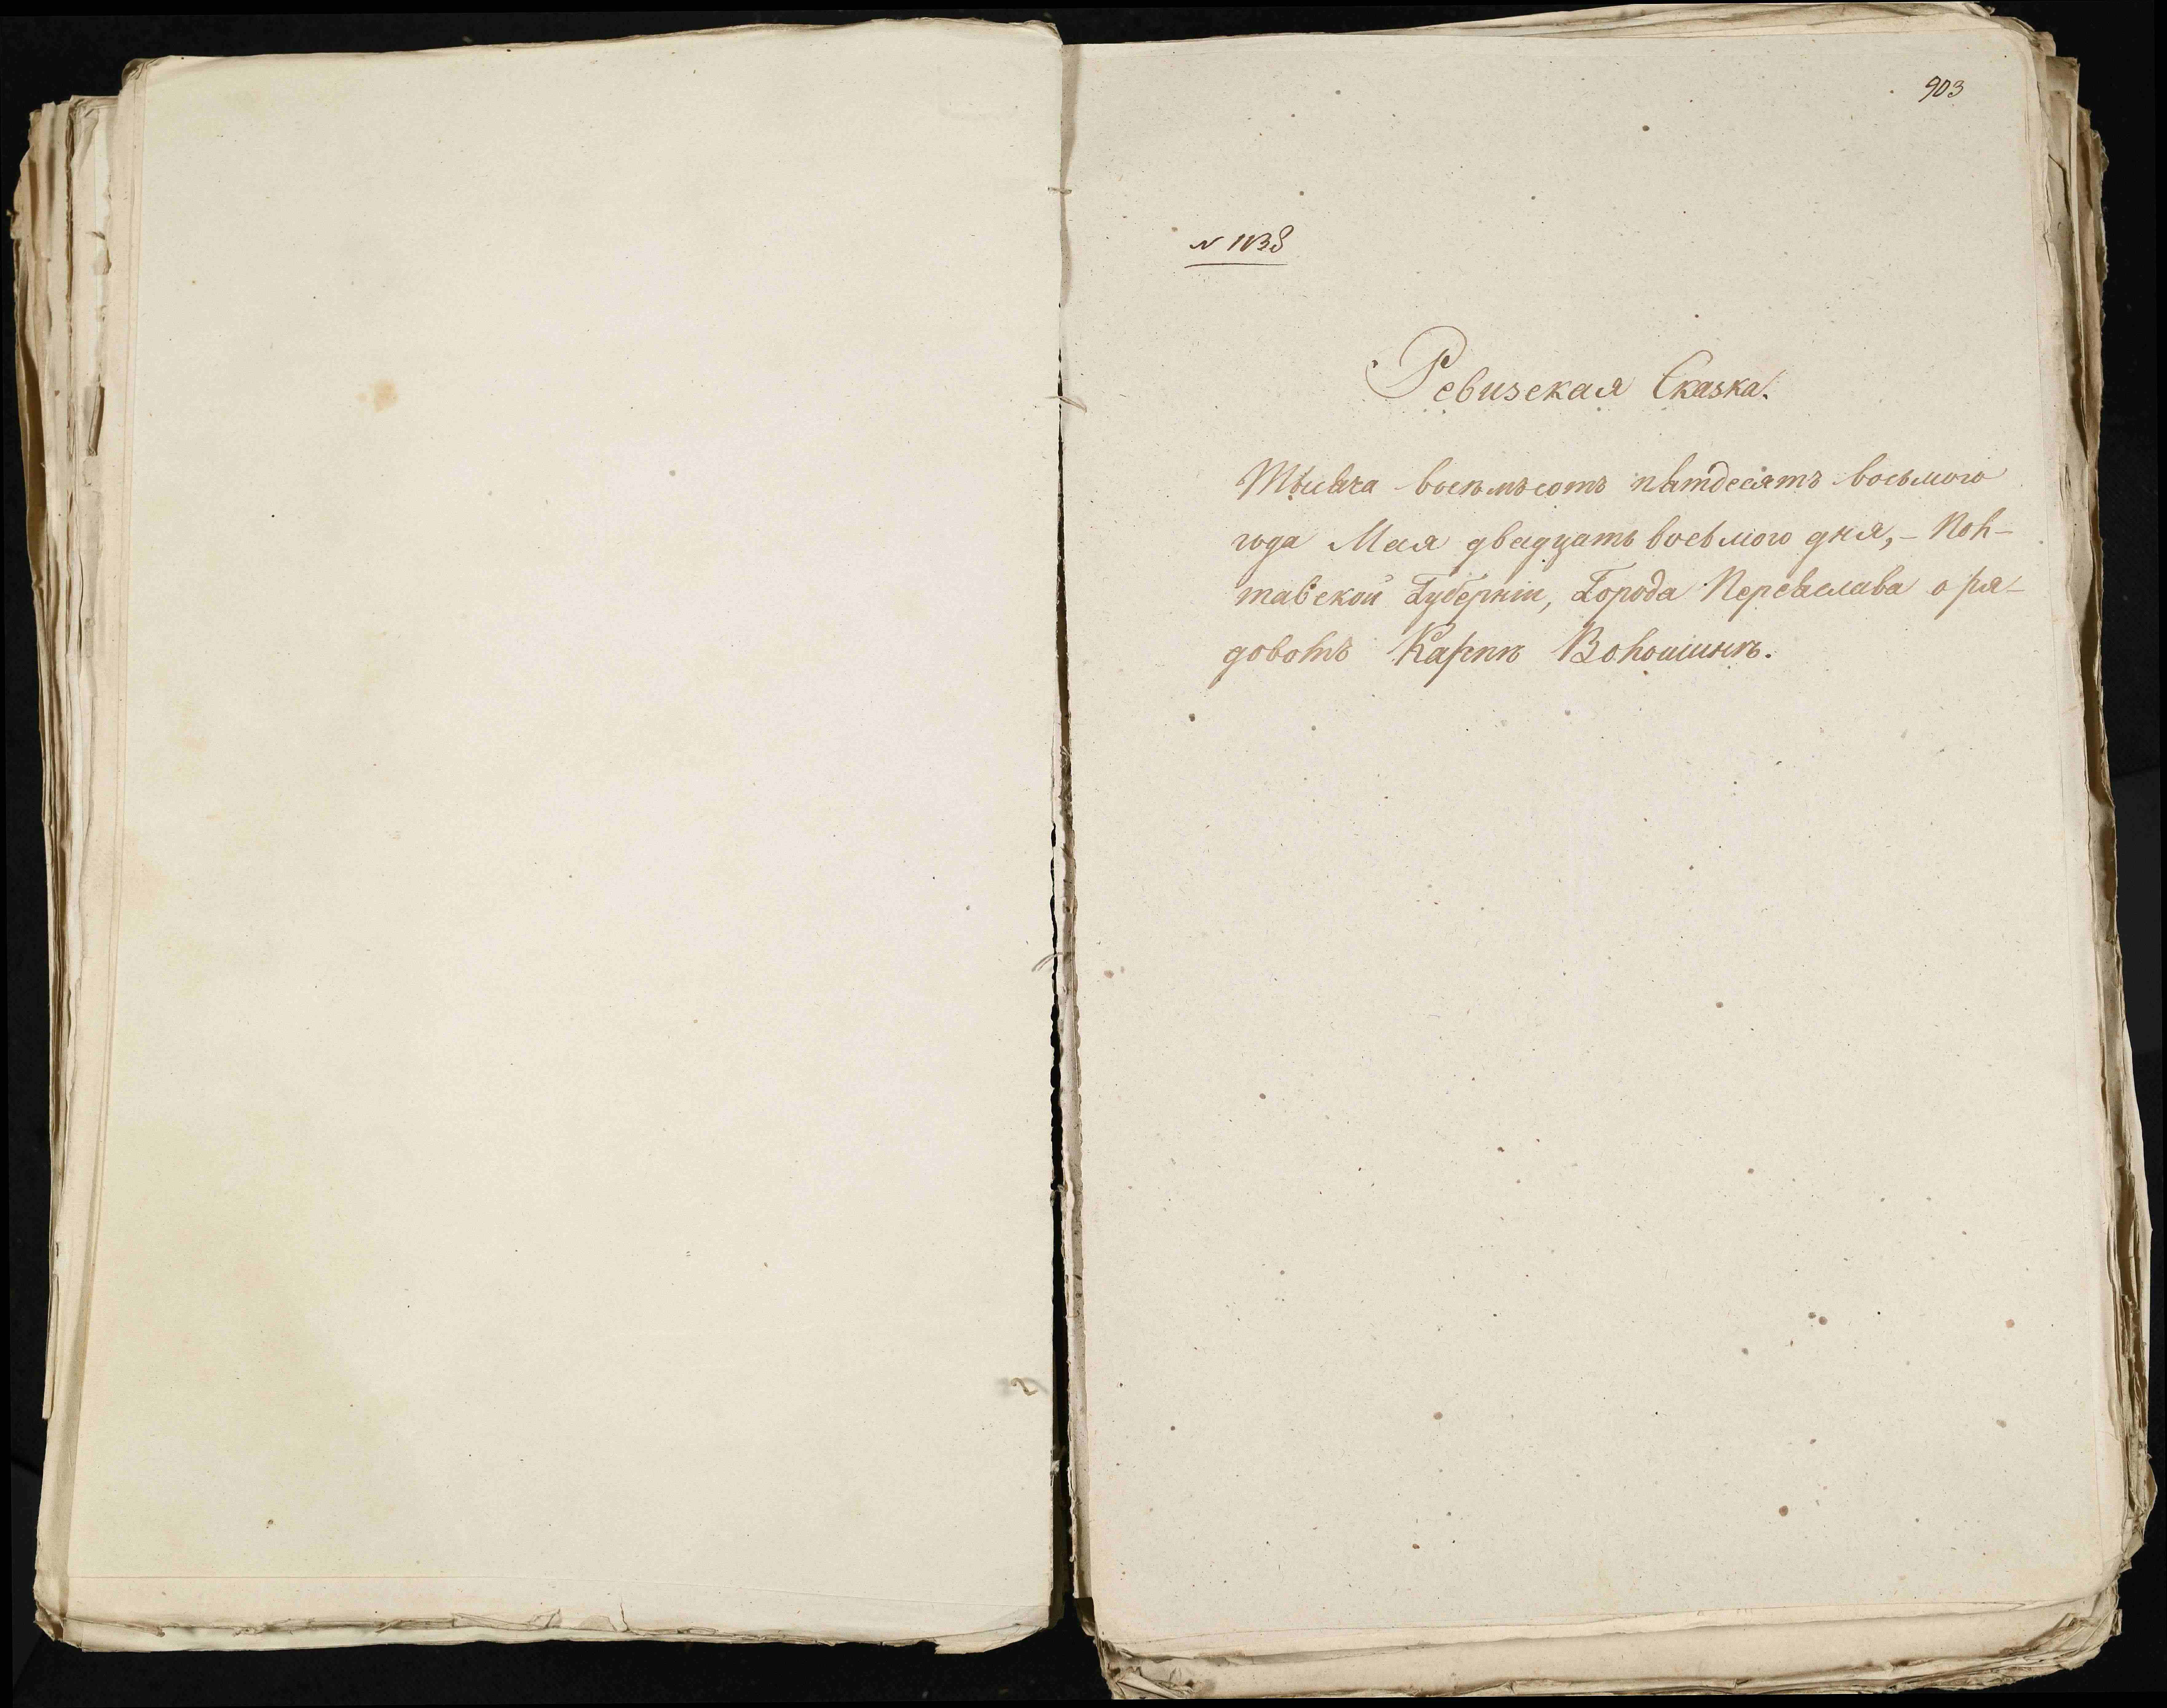 903
N 1138
Ревизская Сказка.
Тысяча восемьсотъ пятдесятъ восьмого
года Мая двадцать восьмого дня,- Пол-
тавской Губерніи, Города Переяслава о ря-
довомъ Карпѣ Волошинѣ.